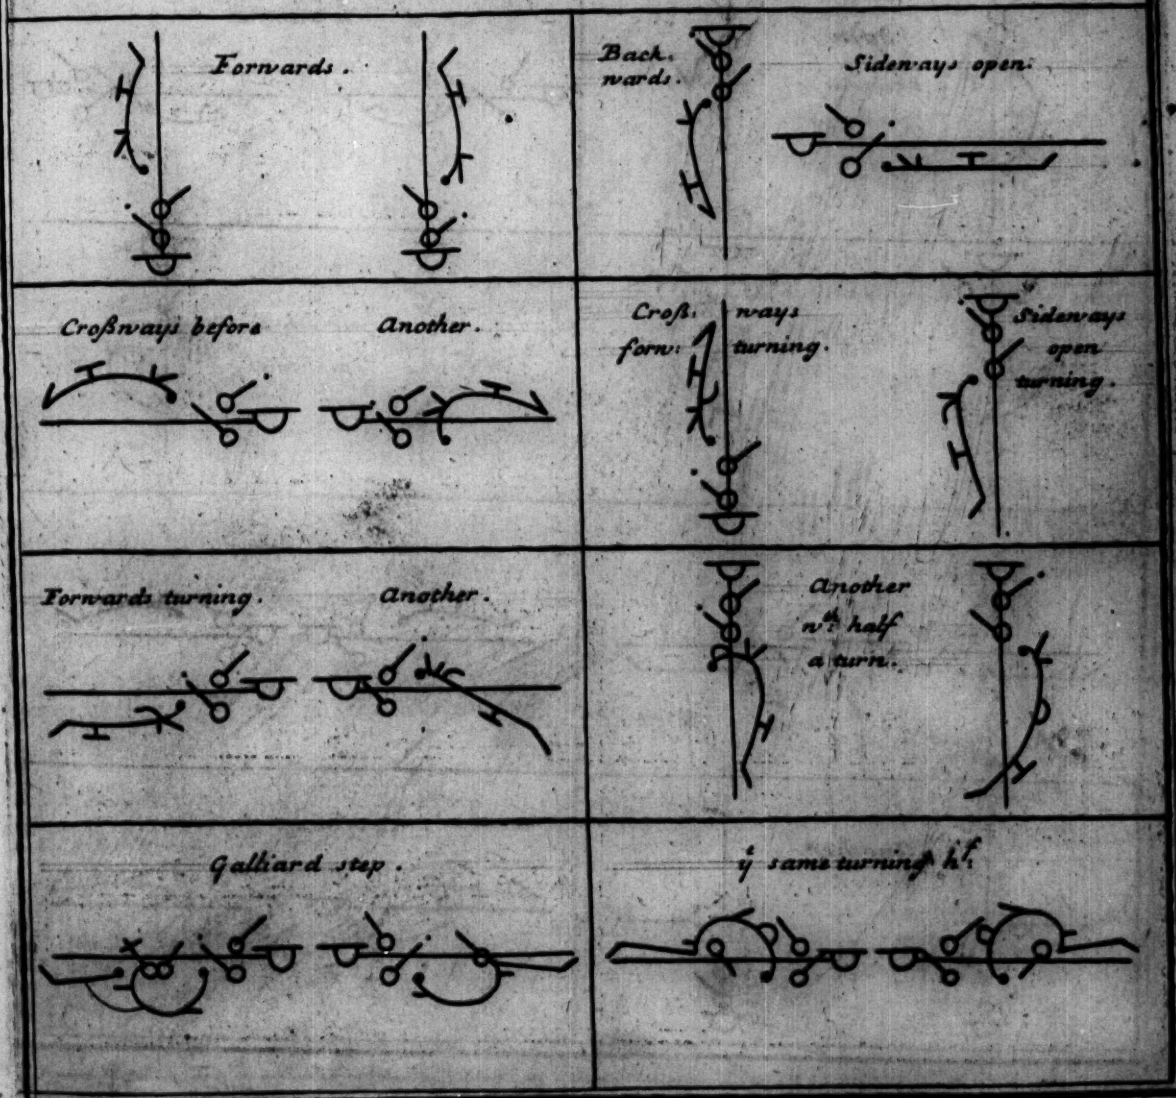 Forwards.
Back.
wards.
Sideways open.
Croßways before
Another.
Croß: ways
forw: turning.
Sideways
open
turning.
Forwards turning.
Another.
Another
wth half
a turn.
Galliard step.
yͭ same turning hf: